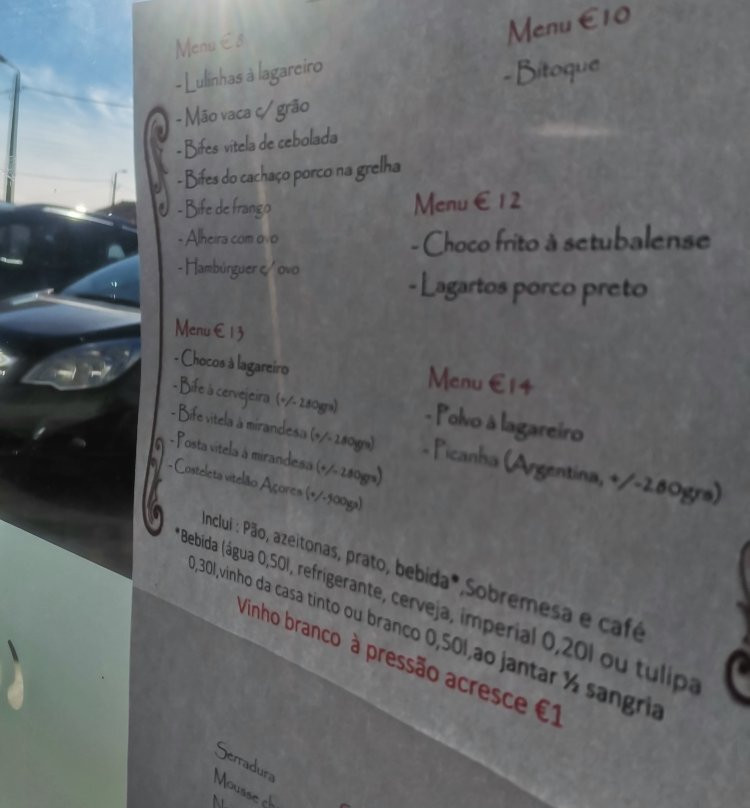 Menu € 8
- Lulinhas à lagareiro
- Mão vaca c/ grão
- Bifes vitela de cebolada
- Bifes do cachaço porco na grelha
- Bife de frango
- Alheira com ovo
- Hambúrguer c/ ovo
Menu €10
- Bitoque
Menu € 12
- Choco frito à setubalense
- Lagartos porco preto
Menu € 13
- Chocos à lagareiro
- Bife à cervejeira (+/- 280grs)
- Bife vitela à mirandesa (+/- 280grs)
- Posta vitela à mirandesa (+/- 280grs)
- Costeleta vitelão Açores (+/-500grs)
Menu €14
- Polvo à lagareiro
- Picanha (Argentina, +/-280grs)
Inclui : Pão, azeitonas, prato, bebida*,Sobremesa e café
*Bebida (água 0,50l, refrigerante, cerveja, imperial 0,20l ou tulipa
0,30l,vinho da casa tinto ou branco 0,50l,ao jantar ½ sangria
Vinho branco à pressão acresce €1
Serradura
Mousse